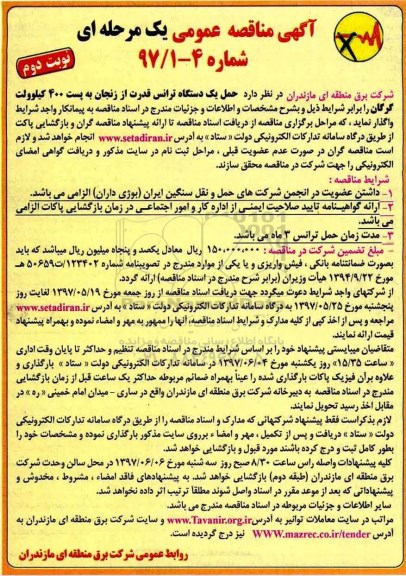 آگهی مناقصه عمومی یک مرحله ای
شماره ۴-۹۷/۱
نوبت دوم
شرکت برق منطقه ای مازندران در نظر دارد حمل یک دستگاه ترانس قدرت از زنجان به پست ۴۰۰ کیلوولت
گرگان را برابر شرایط ذیل و بشرح مشخصات و اطلاعات و جزئیات مندرج در اسناد مناقصه به پیمانکار واجد شرایط
واگذار نماید ، که مراحل برگزاری مناقصه از دریافت اسناد مناقصه تا ارائه پیشنهاد مناقصه گران و بازگشایی پاکت
از طریق درگاه سامانه تدارکات الکترونیکی دولت « ستاد » به آدرس www.setadiran.ir انجام خواهد شد و لازم
است مناقصه گران در صورت عدم عضویت قبلی ، مراحل ثبت نام در سایت مذکور و دریافت گواهی امضای
الکترونیکی را جهت شرکت در مناقصه محقق سازند.
شرایط مناقصه :
۱- داشتن عضویت در انجمن شرکت های حمل و نقل سنگین ایران (بوژی داران) الزامی می باشد.
۲- ارائه گواهینامه تایید صلاحیت ایمنی از اداره کار و امور اجتماعی در زمان بازگشایی پاکات الزامی
می باشد.
۳- مدت زمان حمل ترانس ۳ ماه می باشد.
- مبلغ تضمین شرکت در مناقصه : ۱۵۰.۰۰۰.۰۰۰ ریال معادل یکصد و پنجاه میلیون ریال میباشد که باید
بصورت ضمانتنامه بانکی ، فیش واریزی و یا یکی از موارد مندرج در تصویبنامه شماره ۱۲۳۴۰۲/ت۵۰۶۵۹ هـ
مورخ ۱۳۹۴/۹/۲۲ هیأت وزیران (برابر شرح مندرج در اسناد مناقصه) ارائه گردد.
از شرکتهای واجد شرایط دعوت میگردد جهت دریافت اسناد مناقصه از روز جمعه مورخ ۱۳۹۷/۰۵/۱۹ لغایت روز
پنجشنبه مورخ ۱۳۹۷/۰۵/۲۵ به درگاه سامانه تدارکات الکترونیکی دولت «ستاد » به آدرس www.setadiran.ir
مراجعه و پس از اخذ کپی از کلیه مدارک و شرایط اسناد مناقصه، آنها را ممهور به مهر و امضاء نموده و بهمراه پیشنهاد
قیمت ارائه نمایند.
متقاضیان میبایستی پیشنهاد خود را بر اساس شرایط مندرج در اسناد مناقصه تنظیم و حداکثر تا پایان وقت اداری
«ساعت ۱۵/۳۵» روز یکشنبه مورخ ۱۳۹۷/۰۶/۰۴ در سامانه تدارکات الکترونیکی دولت « ستاد » بارگذاری و
علاوه برآن فیزیک پاکات بارگذاری شده را عیناً بهمراه ضمائم مربوطه حداکثر یک ساعت قبل از زمان بازگشایی
مندرج در اسناد مناقصه به دبیرخانه شرکت برق منطقه ای مازندران واقع در ساری - میدان امام خمینی « ره » در
مقابل اخذ رسید تحویل نمایند.
لازم بذکراست فقط پیشنهاد شرکتهائی که مدارک و اسناد مناقصه را از طریق درگاه سامانه تدارکات الکترونیکی
دولت « ستاد » دریافت و پس از تکمیل ، مهر و امضاء برروی سایت مذکور بارگذاری نموده و مشخصات خود را
بطور کامل ثبت و درج کرده باشند مورد قبول و بازگشایی خواهد شد.
کلیه پیشنهادات واصله راس ساعت ۸/۳۰ صبح روز سه شنبه مورخ ۱۳۹۷/۰۶/۰۶ در محل سالن وحدت شرکت
برق منطقه ای مازندران (طبقه دوم) بازگشایی خواهد شد. به پیشنهادهای فاقد امضاء ، مشروط ، مخدوش و
پیشنهاداتی که بعد از موعد مقرر در اسناد واصل شوند مطلقاً ترتیب اثر داده نخواهد شد.
سایر اطلاعات و جزئیات مربوطه در اسناد مناقصه مندرج می باشد.
مراتب در سایت معاملات توانیر به آدرس www.Tavanir.org.ir و سایت شرکت برق منطقه ای مازندران به
آدرس WWW.mazrec.co.ir/tender نیز درج گردیده است.
روابط عمومی شرکت برق منطقه ای مازندران